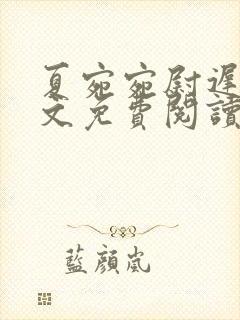 夏宛宛尉遲
文免費閱讀
藍顔嵐